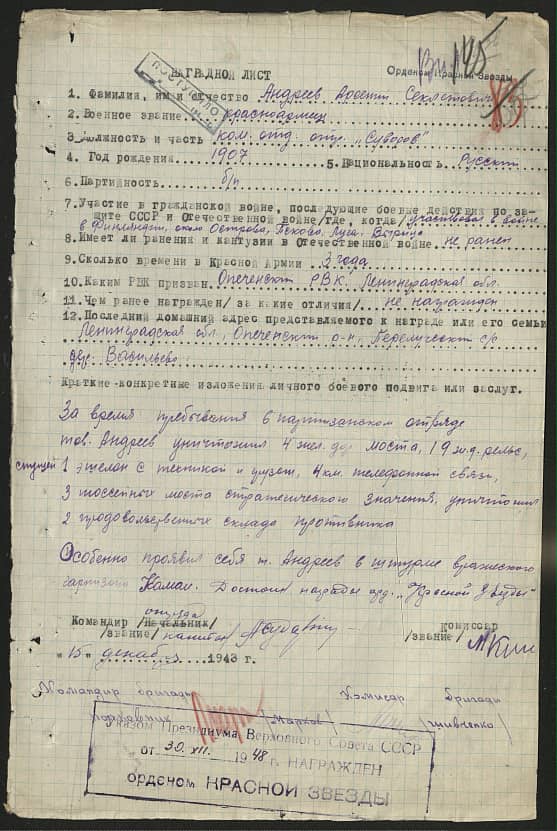 НАГРАДНОЙ ЛИСТ
Орденом Красной Звезды
1. Фамилия, имя и отчество Андреев Арсентий
2. Военное звание красноармеец
3. Должность и часть ком. отд. отр. „Суворов"
4. Год рождения 1907 5. Национальность Русский
6. Партийность б/п
7. Участие в гражданской войне, последующие боевые действия по за-
щите СССР и Отечественной войне/где, когда/ участвовал в войне
в Финляндии, около Острова, Пскова, Луга
8. Имеет ли ранения и кантузии в Отечественной войне не ранен
9. Сколько времени в Красной Армии 3 года
10. Каким РВК призван Опеченским РВК. Ленинградская обл.
11. Чем ранее награжден/ за какие отличия/ не награжден
12. Последний домашний адрес представляемого к награде или его семьи
Ленинградская обл., Опеченский р-н, с/с
дер. Васильево
Краткие конкретные изложения личного боевого подвига или заслуг.
За время пребывания в партизанском отряде
тов. Андреев уничтожил 4 жел. дор. моста, 19 ж.д. рельс,
1 эшелон с техникой и грузом, 4 км. телефонной связи,
3 шоссейных моста стратегического значения, уничтожил
2 продовольственных склада противника
Особенно проявил себя т. Андреев в штурме вражеского
гарнизона Достоин награды орд. „Красной Звезды"
отряда
Командир /Начальник/
/звание/ капитан
комиссар
/звание/
"15" декабря 1943 г.
Командир бригады Комисар бригады
/Марков/
Указом Президиума Верховного Совета СССР
от 30.XII. 1948 г. НАГРАЖДЕН
орденом КРАСНОЙ ЗВЕЗДЫ